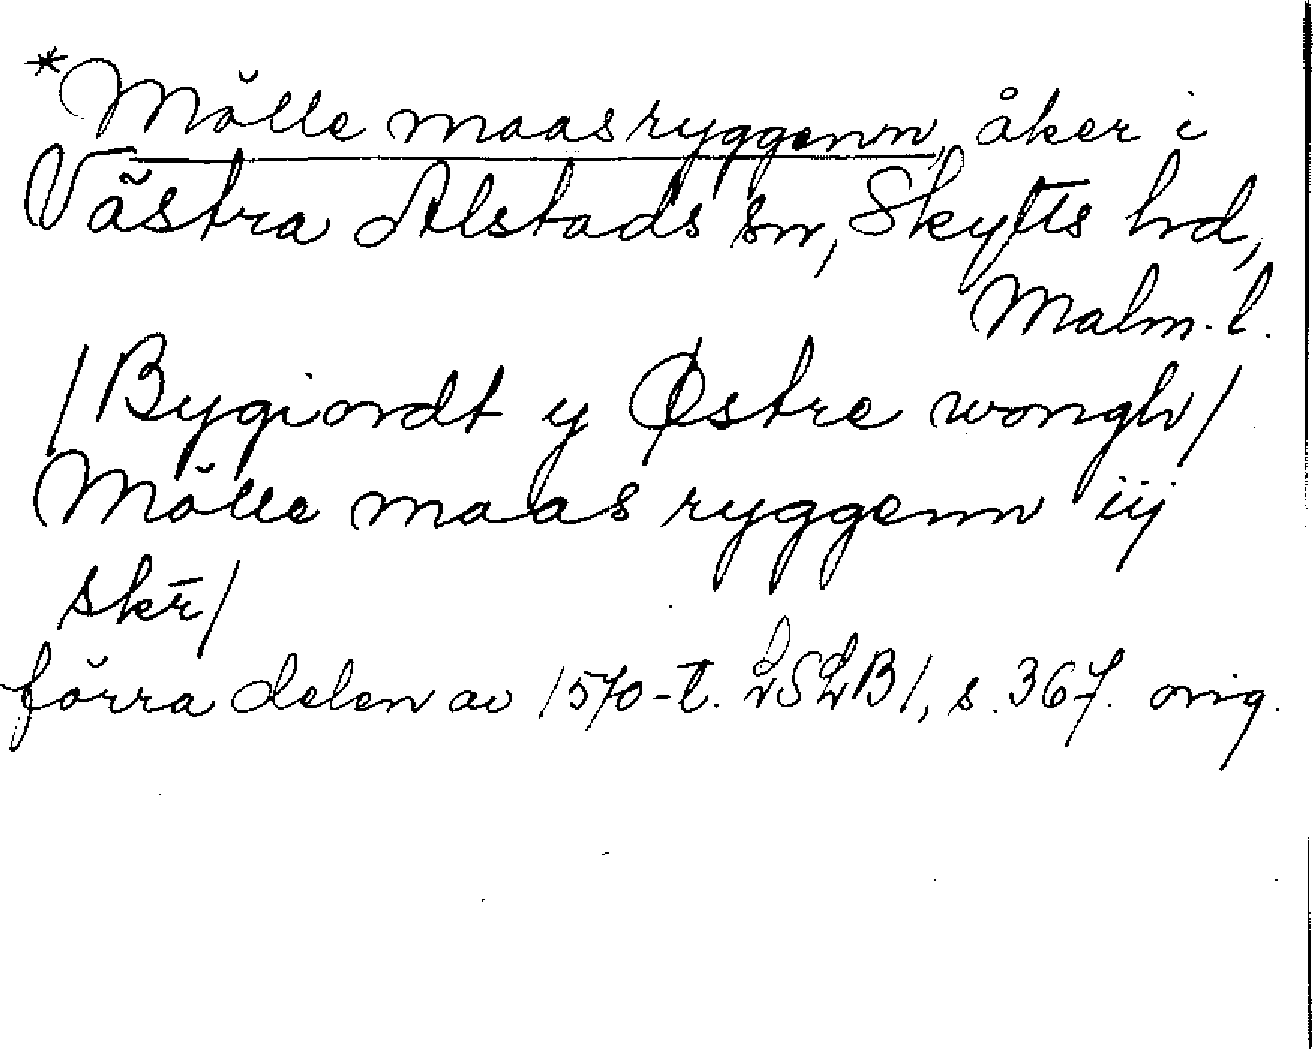 *Mölle maasryggenn, åker i
Västra Alstads sn, Skytts hd,
Malm. l.
/Bygiordt y Østre wongh/
Mölle maas ryggenn iij
skr̄/
förra delen av 1570-t. LSLB 1, s. 367. orig.